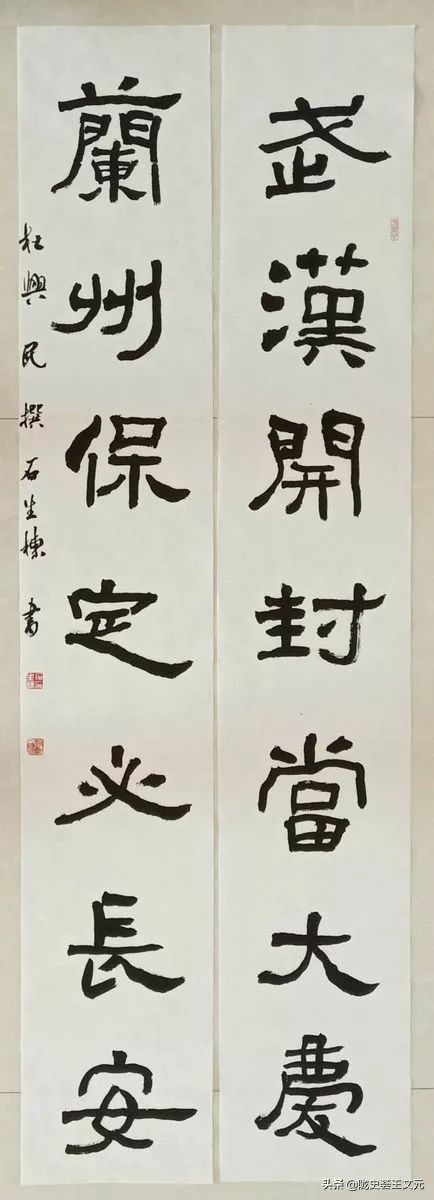 武漢開封當大慶
蘭州保定必長安
杜興民撰 石生棟書
头条@陇史荟王文元